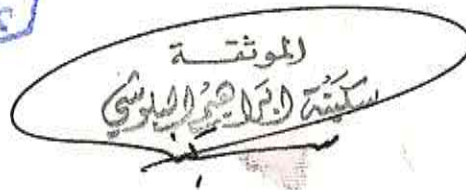 الموثقة
سكينة ابراهيم البلوشي